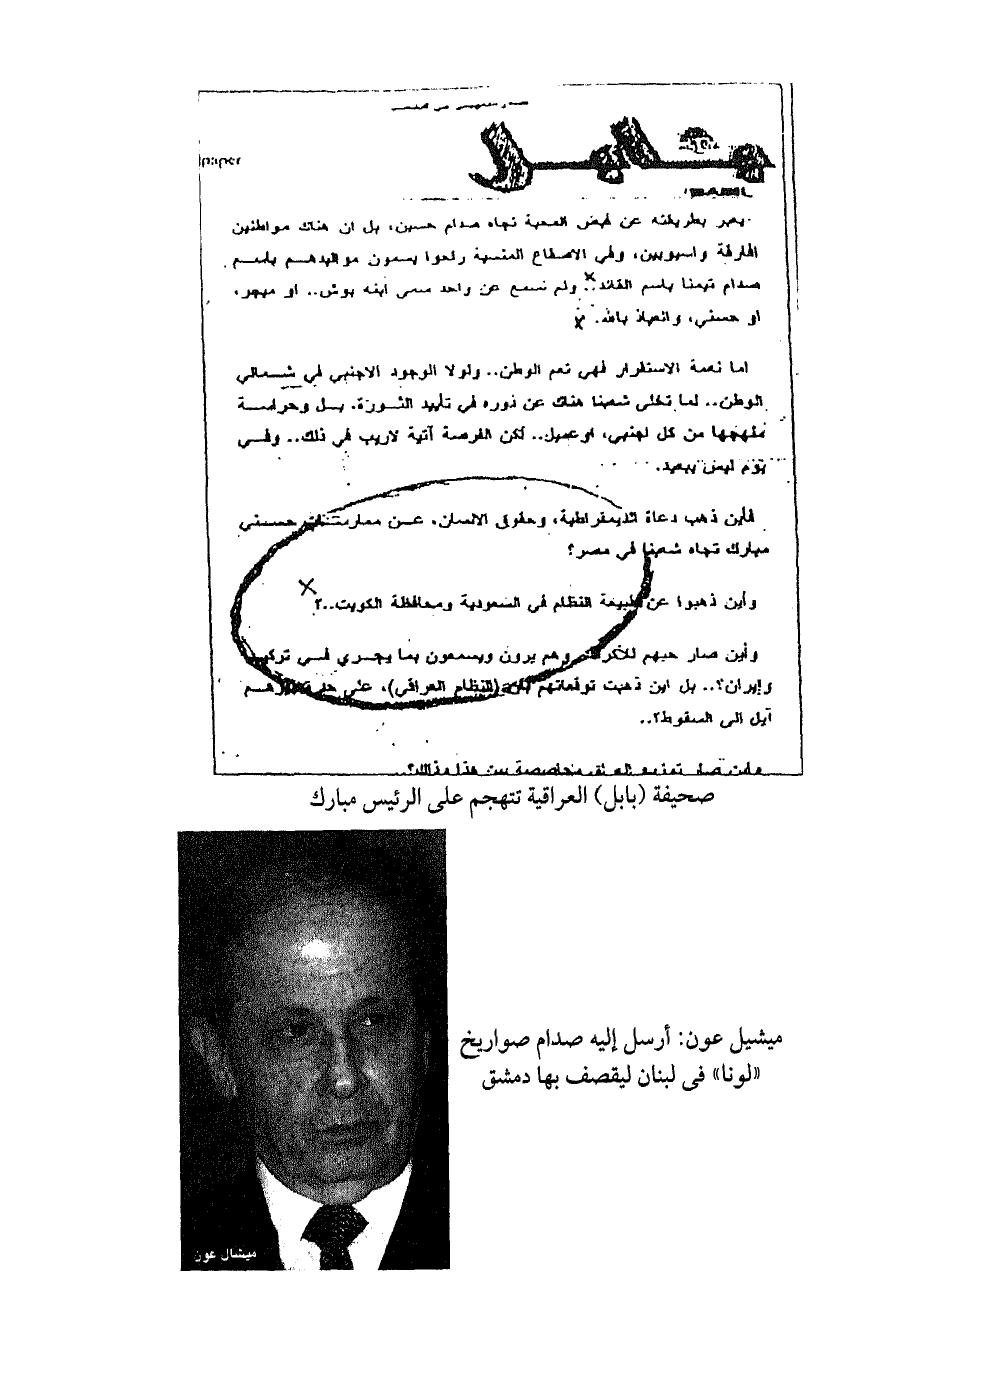 paper
BABIL
يعبر بطريقته عن فيض المحبة تجاه صدام حسين، بل ان هناك مواطنين
افارقة واسيويين، وفي الاصقاع المنسية راحوا يسمون مواليدهم باسم
صدام تيمنا باسم القائد.. ولم نسمع عن واحد سمى ابنه بوش.. او ميجر،
او حسني، والعياذ بالله.
اما نعمة الاستقرار فهي نعم الوطن.. ولولا الوجود الاجنبي في شمالي
الوطن.. لما تخلى شعبنا هناك عن دوره في تأييد الثورة. بل وحراسة
منهجها من كل اجنبي، اوعميل.. لكن الفرصة آتية لاريب في ذلك.. وفي
يوم ليس ببعيد.
فأين ذهب دعاة الديمقراطية، وحقوق الانسان، عن ممارسات حسني
مبارك تجاه شعبنا في مصر؟
وأين ذهبوا عن طبيعة النظام في السعودية ومحافظة الكويت..؟
وأين صار حبهم للأكراد وهم يرون ويسمعون بما يجري في تركيا
وإيران؟.. بل اين ذهبت توقعاتهم بأن (النظام العراقي)، على حد
آيل الى السقوط؟..
صحيفة (بابل) العراقية تتهجم على الرئيس مبارك
ميشيل عون: أرسل إليه صدام صواريخ
«لونا» فى لبنان ليقصف بها دمشق
ميشال عون